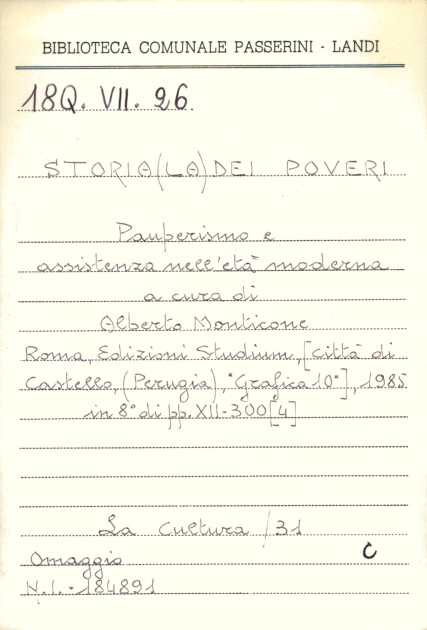 BIBLIOTECA COMUNALE PASSERINI - LANDI
18Q. VII. 26
STORIA (LA) DEI POVERI
Pauperismo e
assistenza nell'età moderna
a cura di
Alberto Monticone
Roma, Edizioni Studium, [città di
Castello, (Perugia), "Grafica 10"], 1985
in 8° di pp. XII-300 [4]
La cultura / 31
Omaggio C
N.I. - 184891